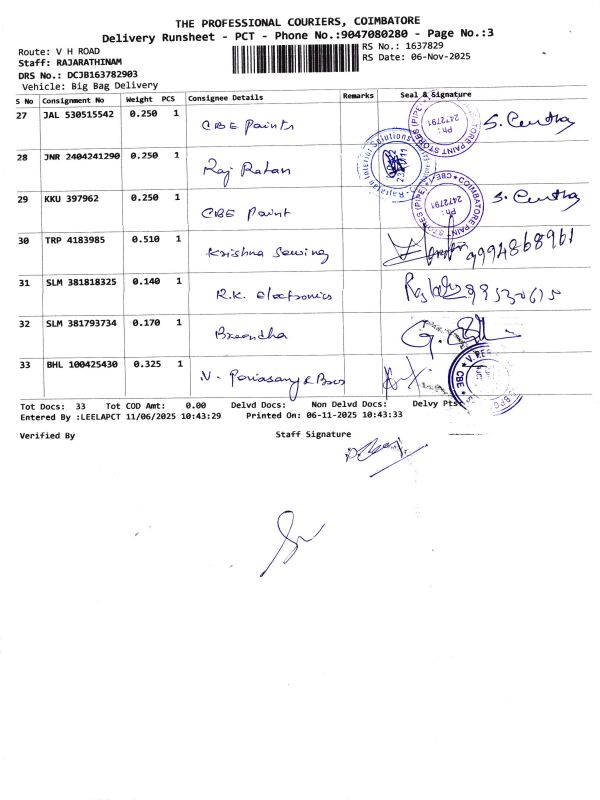 THE PROFESSIONAL COURIERS, COIMBATORE
Delivery Runsheet - PCT - Phone No.:9047080280 - Page No.:3
Route: V H ROAD
RS No.: 1637829
Staff: RAJARATHINAM
RS Date: 06-Nov-2025
DRS No.: DCJB163782903
Vehicle: Big Bag Delivery
S No Consignment No Weight PCS Consignee Details Remarks Seal & Signature
27 JAL 530515542 0.250 1 CBE Paints S. Centhz
28 JNR 2404241290 0.250 1 Raj Ratan
29 KKU 397962 0.250 1 CBE Paint
30 TRP 4183985 0.510 1 Krishna Sewing 9994868961
31 SLM 381818325 0.140 1 R.K. electronics
32 SLM 381793734 0.170 1
33 BHL 100425430 0.325 1 N. Periasamy & Bros
Tot Docs: 33 Tot COD Amt: 0.00 Delvd Docs: Non Delvd Docs: Delvy Pts:
Entered By :LEELAPCT 11/06/2025 10:43:29 Printed On: 06-11-2025 10:43:33
Verified By Staff Signature